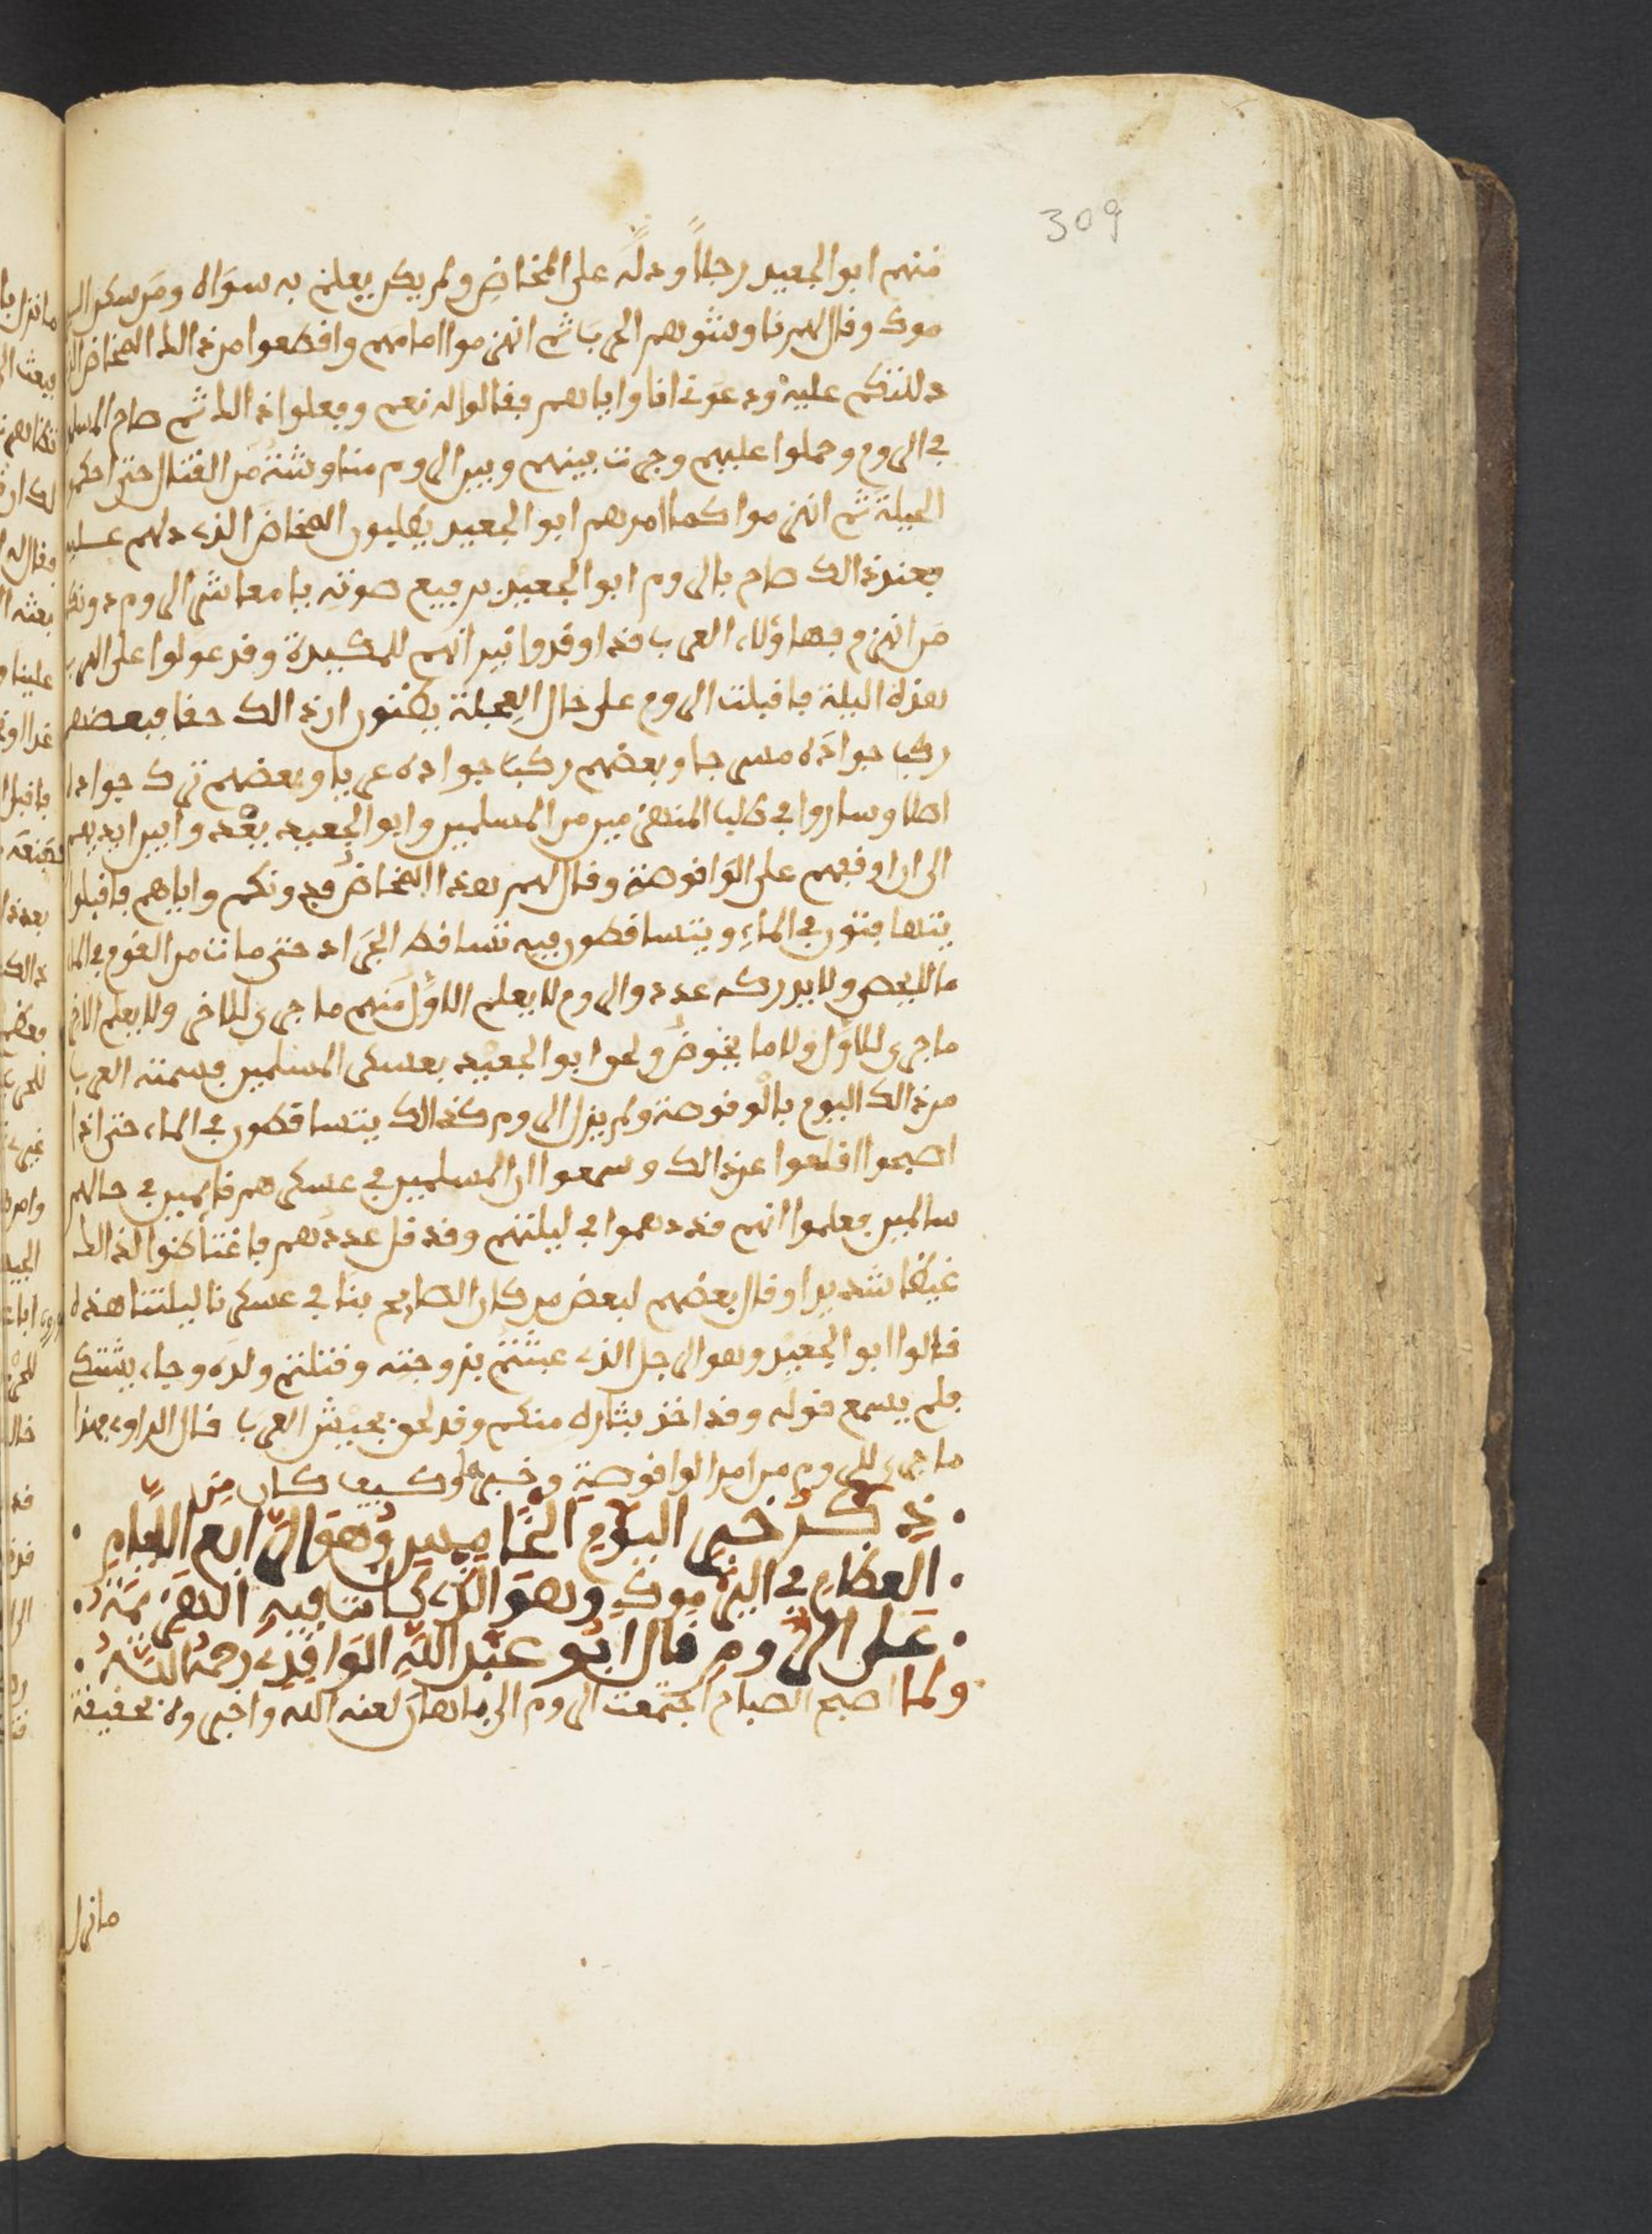 309
منهم ابو الجعيد رجلا ودله على المخاض ولم يكن يعلم به سواه ومن سكن الير
موك وقال لهم ناوشوهم الحرب ثم انهزموا امامهم واقطعوا من ذالك المخاض الذي
دللتكم عليه ودعوني انا واياهم فقالوا له نعم وفعلوا ذالك ثم صاح المسلمـ
في الروم وحملوا عليهم وجرت بينهم وبين الروم مناوشة من القتال حتى احكمـ
الحيلة ثم انهزموا كما امرهم ابو الجعيد يطلبون المخاض الذي دلهم عليه
فعند ذالك صاح بالروم ابو الجعيد برفيع صوته يا معاشر الروم دونكم
من انهزم فهاؤلاء العرب قد اوقدوا نيرانهم للمكيدة وقد عولوا على الهرب
هذه الليلة فاقبلت الروم على حال العجلة يظنون ان ذالك حقا فبعضهم
ركب جواده مسرجا وبعضهم ركب جواده عريا وبعضهم ترك جواده
اصلا وساروا في طلب المنهزمين من المسلمين وابو الجعيد يعدوا بين ايديهم
الى ان اوقفهم على الواقوصة وقال لهم هذا المخاض فدونكم واياهم فاقبلوا
يتهافتون في الماء ويتساقطون فيه تساقط الجراد حتى مات من القوم في الماء
ما لا يحصى ولا يدرك عدده والروم لا يعلم الاول منهم ما جرى للاخر ولا يعلم الاخر
ما جرى للاول ولا ما يخوض ولحق ابو الجعيد بعسكر المسلمين فسمته العرب
من ذالك اليوم بالوقوصة ولم يزل الروم كذالك يتساقطون في الماء حتى اذا
اصبحوا اقلعوا عن ذالك وسمعوا ان المسلمين في عسكرهم قايمين في حالهم
سالمين فعلموا انهم قد دهموا في ليلتهم وقد قل عددهم فاغتاظوا لذالك
غيظا شديدا وقال بعضهم لبعض من كان الصايح بنا في عسكرنا ليلتنا هذه
قالوا ابو الجعيد وهو الرجل الذي عبثتم بزوجته وقتلتم ولده وجاء يشتك
فلم يسمع قوله وقد اخذ بثاره منكم وقد لحق بجيش العرب قال الراوي فهذا
ما جرى للروم من امر الواقوصة وخبرها وكيف كان من
ذكر خبر اليوم الخامس وهو الرابع الايام
العظام في اليرموك وهو الذي كانت فيه الهزيمة
على الروم قال ابو عبد الله الواقدي رحمه الله
ولما اصبح الصباح اجتمعت الروم الى ماهان لعنه الله واخبروه بحقيقة
ما نزل